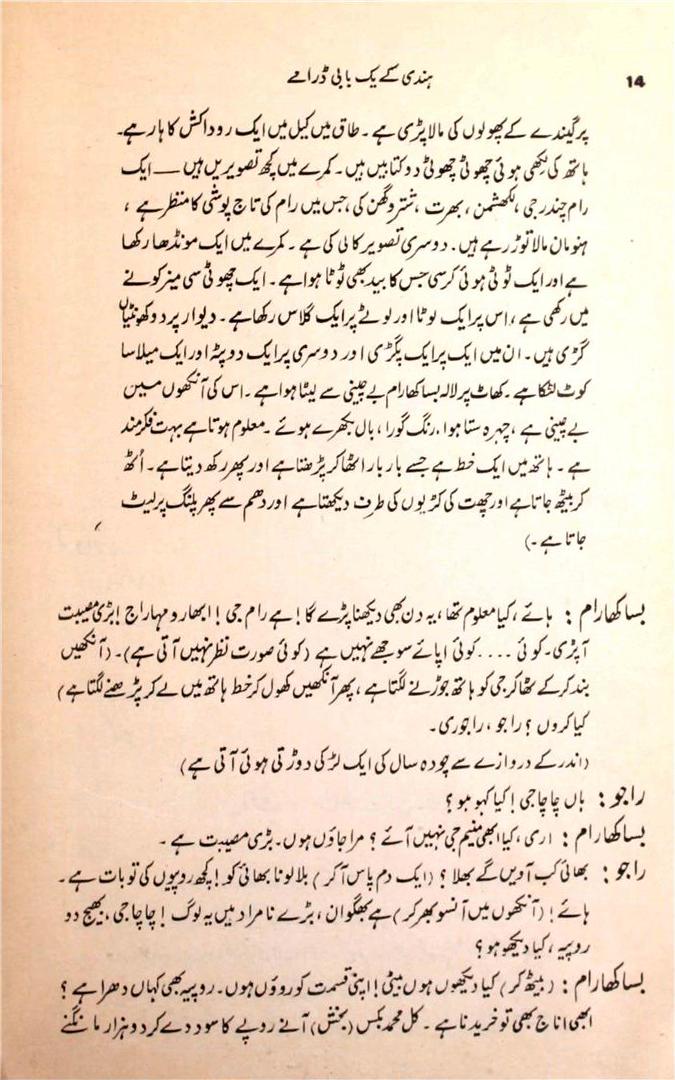 14
ہندی کے یک بابی ڈرامے
پر گیندے کے پھولوں کی مالا پڑی ہے ۔ طاق میں کیل میں ایک روداکش کا ہار ہے۔
ہاتھ کی لکھی ہوئی چھوٹی چھوٹی دو کتابیں ہیں۔ کمرے میں کچھ تصویریں ہیں — ایک
رام چندر جی ، لکھشمن ، بھرت ، شتروگھن کی ،جس میں رام کی تاج پوشی کا منظر ہے ،
ہنومان مالا توڑ رہے ہیں. دوسری تصویر کالی کی ہے ۔ کمرے میں ایک مونڈھا رکھا
ہے اور ایک ٹوٹی ہوئی کرسی جس کا بید بھی ٹوٹا ہوا ہے ۔ ایک چھوٹی سی میز کونے
میں رکھی ہے ، اس پر ایک لوٹا اور لوٹے پر ایک گلاس رکھا ہے ۔ دیوار پر دو کھونٹیاں
گڑی ہیں۔ ان میں ایک پر ایک پگڑی اور دوسری پر ایک دوپٹہ اور ایک میلا سا
کوٹ لٹکا ہے ۔ کھاٹ پر لالہ بساکھا رام بے چینی سے لیٹا ہوا ہے ۔ اس کی آنکھوں میں
بے چینی ہے ، چہرہ ستا ہوا ، رنگ گورا ، بال بکھرے ہوئے ۔ معلوم ہوتا ہے بہت فکرمند
ہے ۔ ہاتھ میں ایک خط ہے جسے بار بار اٹھا کر پڑھتا ہے اور پھر رکھ دیتا ہے ۔ اُٹھ
کر بیٹھ جاتا ہے اور چھت کی کڑیوں کی طرف دیکھتا ہے اور دھم سے پھر پلنگ پر لیٹ
جاتا ہے ۔)
بساکھا رام : ہائے ، کیا معلوم تھا ، یہ دن بھی دیکھنا پڑے گا ! ہے رام جی ! ابھارو مہاراج ! بڑی مصیبت
آپڑی۔ کوئی .... کوئی اپائے سوجھے نہیں ہے (کوئی صورت نظر نہیں آتی ہے)۔ (آنکھیں
بند کرکے ٹھاکر جی کو ہاتھ جوڑنے لگتا ہے ، پھر آنکھیں کھول کر خط ہاتھ میں لے کر پڑھنے لگتا ہے)
کیا کروں ؟ راجو ، راجو ری۔
(اندر کے دروازے سے چودہ سال کی ایک لڑکی دوڑتی ہوئی آتی ہے)
راجو : ہاں چاچا جی ! کیا کہو ہو ؟
بساکھا رام : اری ، کیا ابھی منیم جی نہیں آئے ؟ مرا جاؤں ہوں۔ بڑی مصیبت ہے ۔
راجو : بھائی کب آویں گے بھلا ؟ (ایک دم پاس آکر) بلالو نا بھائی کو ! کچھ روپیوں کی تو بات ہے ۔
ہائے ! (آنکھوں میں آنسو بھر کر) ہے بھگوان ، بڑے نامراد ہیں یہ لوگ ! چاچا جی ، بھیج دو
روپیہ ، کیا دیکھو ہو ؟
بساکھا رام : (بیٹھ کر) کیا دیکھوں ہوں بیٹی ! اپنی قسمت کو روؤں ہوں۔ روپیہ بھی کہاں دھرا ہے ؟
ابھی اناج بھی تو خریدنا ہے ۔ کل محمد بکس (بخش) آنے روپے کا سود دے کر دو ہزار مانگنے